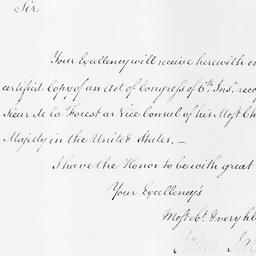 Sir
Your Excellency will receive herewith
certified Copy of an Act of Congress of 6th Inst.
Sieur de la Forest as Vice Consul of his Most Ch
Majesty in the United States. —
I have the Honor to be with great
Your Excellency's
Most obt. & very
John Jay